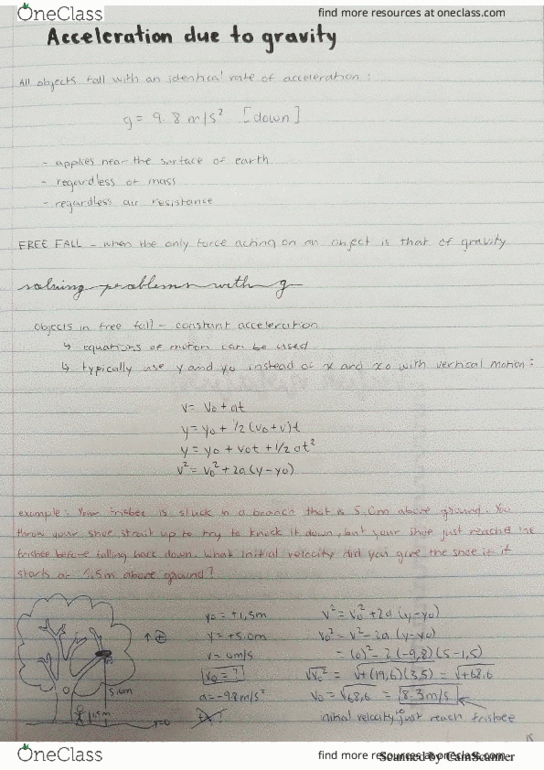 OneClass
find more resources at oneclass.com
Acceleration due to gravity
All objects fall with an identical rate of acceleration:
g= 9.8 m/s² [down]
- applies near the surface of earth
- regardless of mass
- regardless air resistance
FREE FALL - when the only force acting on an object is that of gravity
solving problems with g
objects in free fall - constant acceleration
↳ equations of motion can be used
↳ typically use y and y0 instead of x and x0 with vertical motion:
v= v0+at
y= y0+ 1/2(v0+v)t
y= y0 + v0t +1/2 at²
v²= v0²+2a(y-y0)
example: Your frisbee is stuck in a branch that is 5.0m above ground. You
throw your shoe strait up to try to knock it down, but your shoe just reaches the
frisbee before falling back down. What initial velocity did you give the shoe if it
starts at 1.5m above ground?
y0= +1,5m
y= +5.0m
v= 0m/s
v0=?
a= -9.8m/s²
v²=v0²+2a(y-y0)
v0²= v²-2a(y-y0)
= (0)²-2(-9,8)(5-1,5)
√v0² = √+(19,6)(3,5) = √+68.6
v0= √68,6 = 8.3m/s
initial velocity to just reach frisbee
5.0m
1.5m
y=0
15
OneClass
find more resources at oneclass.com
Scanned by CamScanner